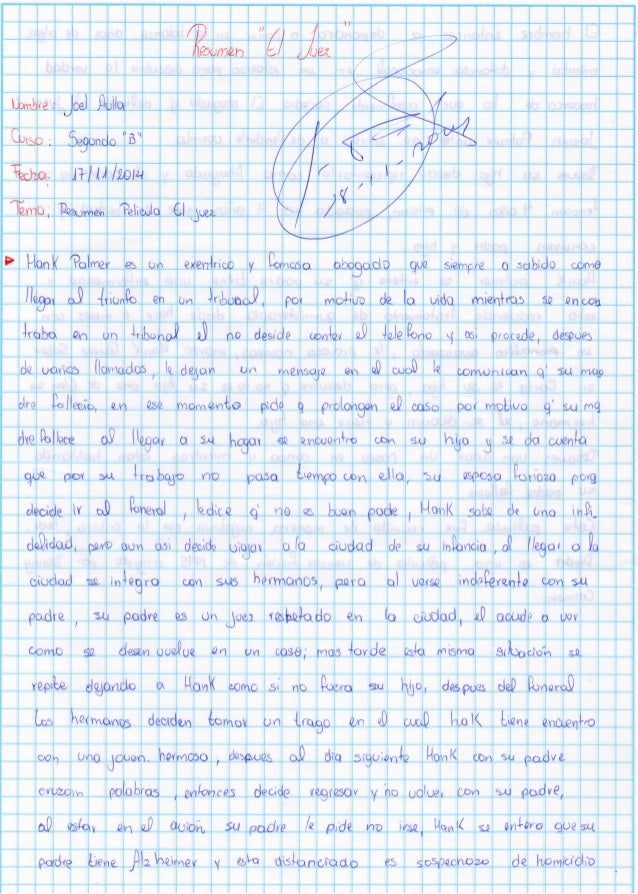 Resumen "El Juez"
Nombre: Joel Aulla
Curso: Segundo "B"
Fecha: 17/11/2014
18-11-2014
Tema: Resumen Pelicula El juez
Hank Palmer es un exentrico y famoso abogado que siempre a sabido como
llegar al triunfo en un tribunal, por motivo de la vida mientras se encon
traba en un tribunal el no deside contar el telefono y asi procede, despues
de varios llamados, le dejan un mensaje en el cual le comunican q' su mag
dre fallecio, en ese momento pide q prolongen el caso por motivo q' su mq
dre fallece al llegar a su hogar se encuentro con su hija y se da cuenta
que por su trabajo no pasa tiempo con ella, su esposa furioza porq
decide ir al funeral, le dice q' no es buen pade, Hank sabe de una infi
delidad, pero aun asi decide viajar a la ciudad de su infancia, al llegar a la
ciudad se integra con sus hermanos, pero al verse indeferente con su
padre, su padre es un juez respetado en la ciudad, el acude a ver
como se desen vuelve en un caso; mas tarde esta misma situación se
repite dejando a Hank como si no fuera su hijo, despues del funeral
Los hermanos deciden tomar un trago en el cual hak tiene encuentro
con una joven hermosa, despues al dia siguiente Hank con su padre
cruzam palabras, entonces decide regresar y no volver con su padre,
al estar en el avión su padre le pide no irse, Hank se entera que su
padre tiene Alzheimer y esta distanciado es sospechozo de homicidio